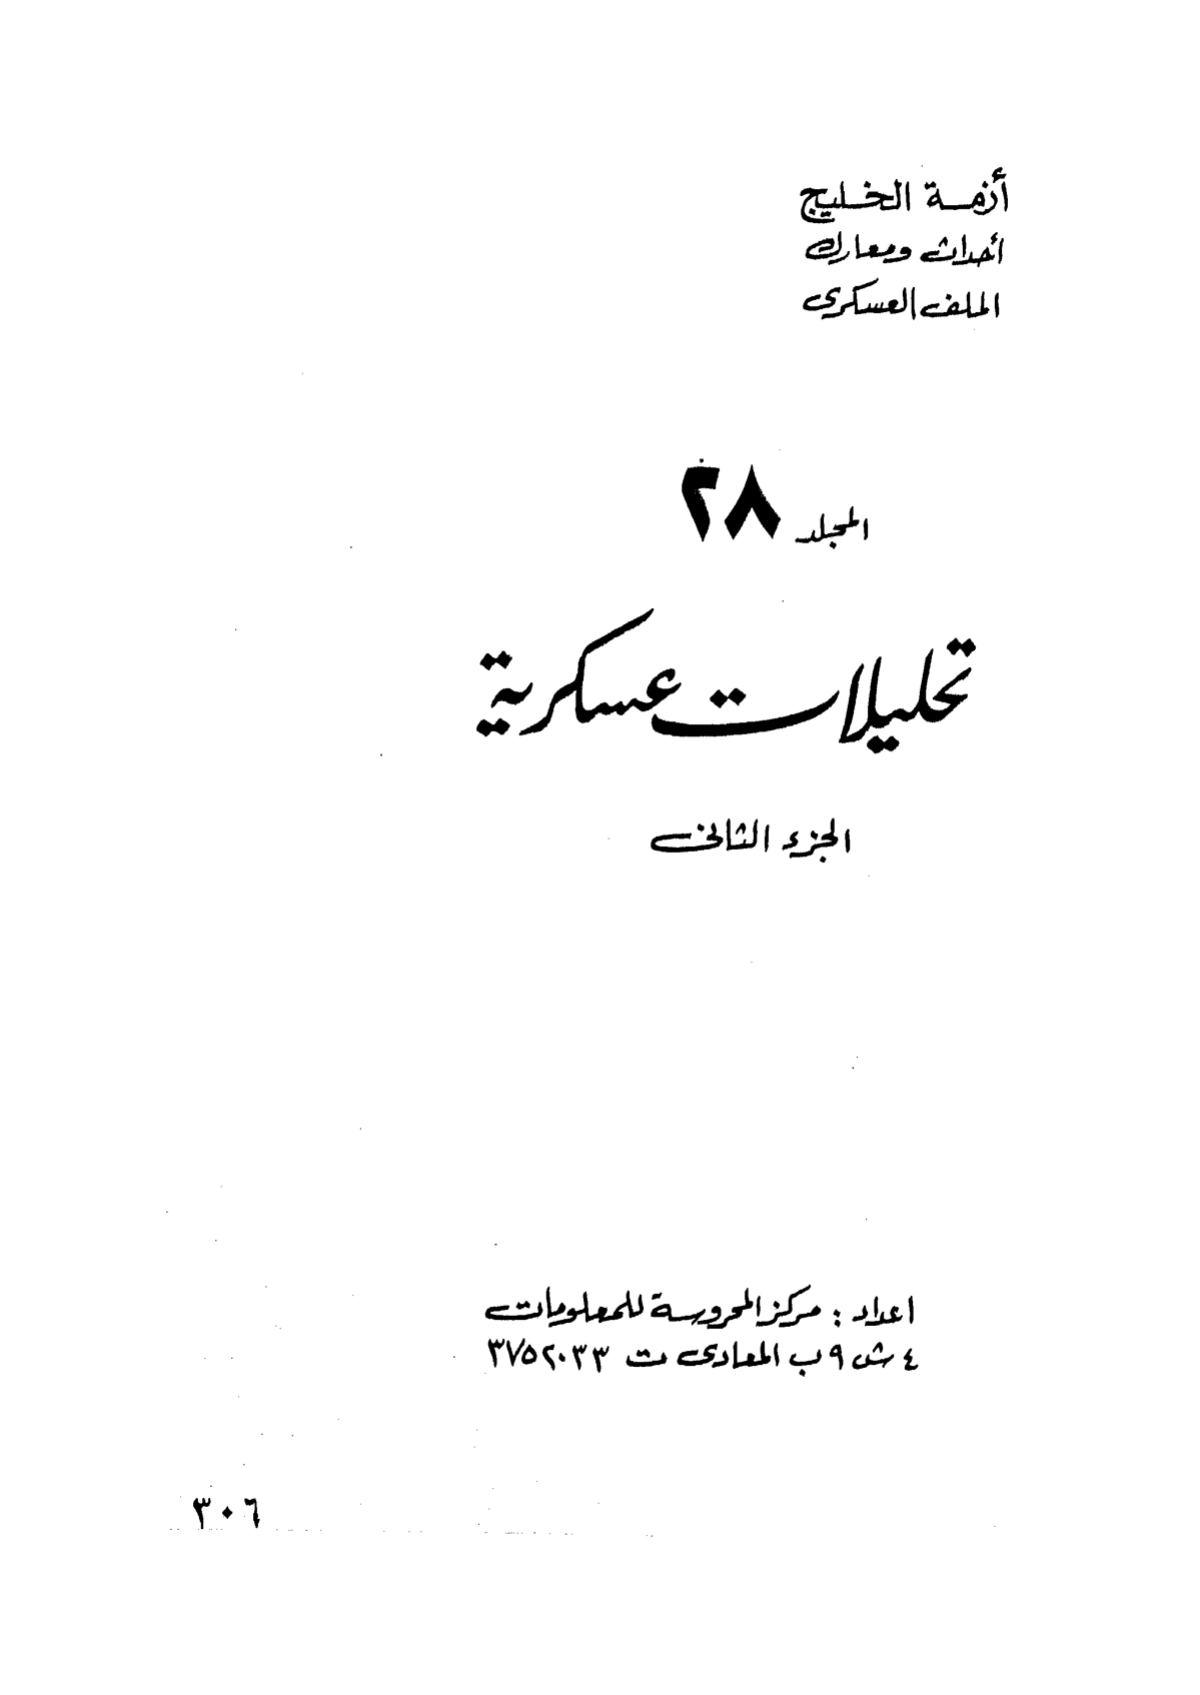 أزمة الخليج
أحداث ومعارك
الملف العسكرى
المجلد ٢٨
تحليلات عسكرية
الجزء الثانى
اعداد : مركز المحروسة للمعلومات
٤ ش ٩ ب المعادى ت ٣٧٥٢٠٣٣
٣٠٦